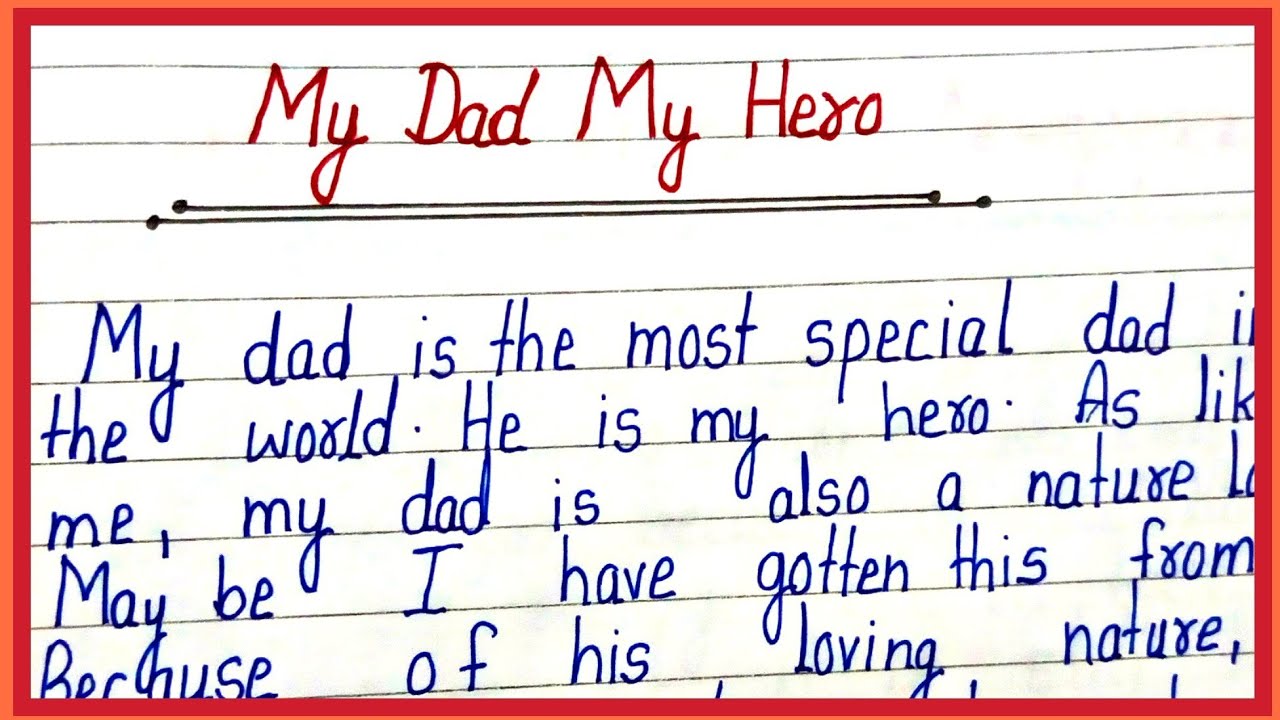 My Dad My Hero
My dad is the most special dad i
the world. He is my hero. As lik
me, my dad is also a nature lo
May be I have gotten this from
Because of his loving nature,